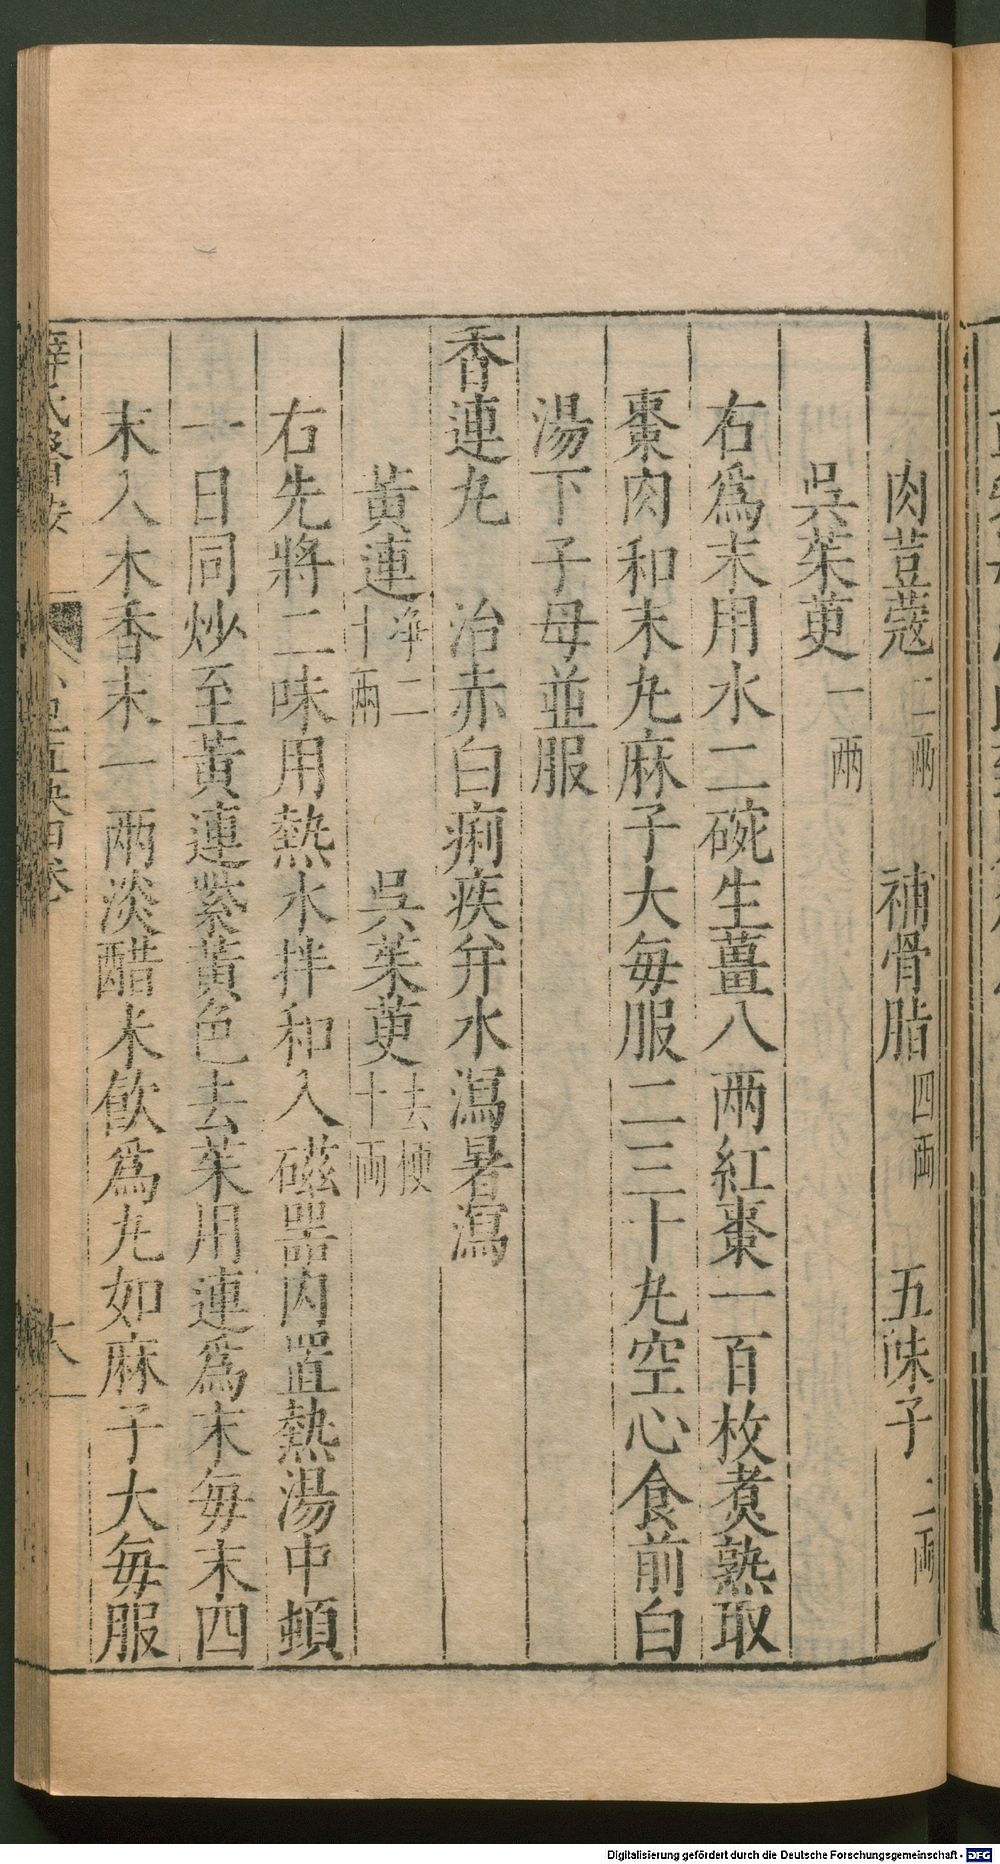 肉荳蔻二兩　補骨脂四兩　五味子二兩
吳茱萸一兩
右爲末用水二碗生薑八兩紅棗一百枚煮熟取
棗肉和末丸麻子大每服二三十丸空心食前白
湯下子母並服
香連丸　治赤白痢疾弁水瀉暑瀉
黃連淨二十兩　吳茱萸去梗十兩
右先將二味用熱水拌和入磁器內置熱湯中頓
一日同炒至黃連紫黃色去茱用連爲末每末四
末入木香末一兩淡醋米飮爲丸如麻子大每服
薛氏醫按
六
Digitalisierung gefördert durch die Deutsche Forschungsgemeinschaft - DFG